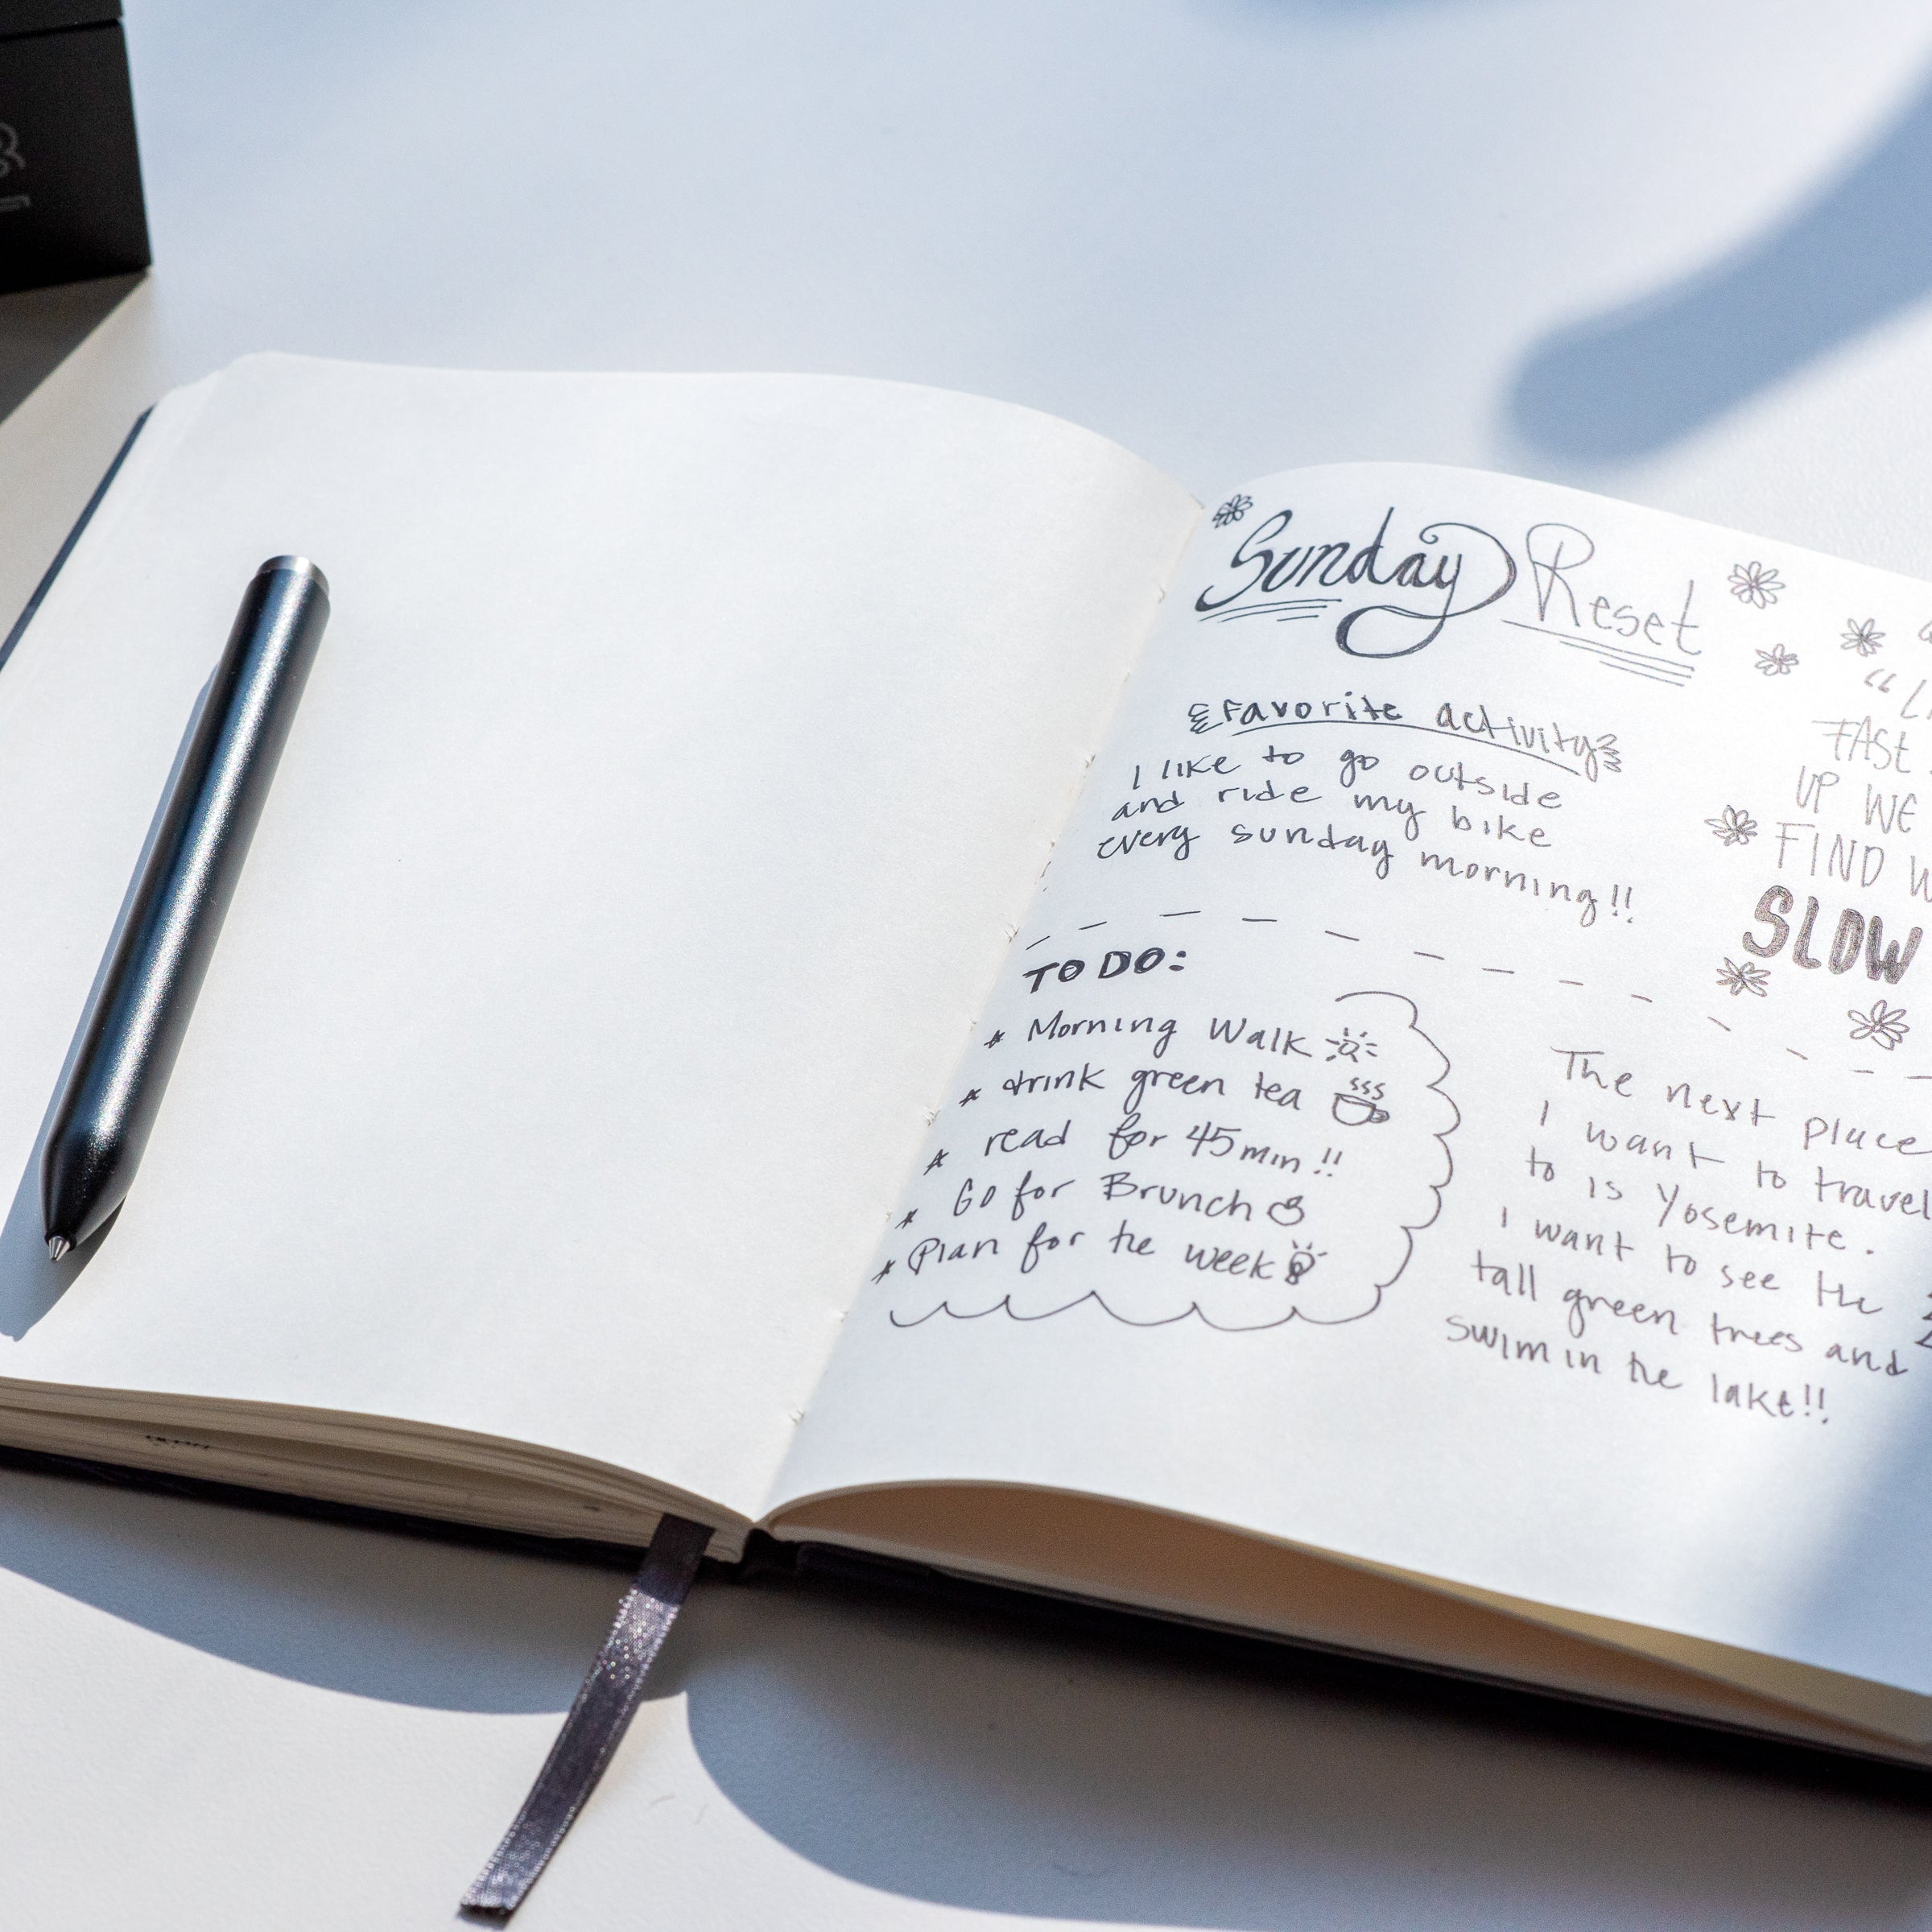 Sunday Reset
Favorite activity
I like to go outside
and ride my bike
every sunday morning!!
TO DO:
* Morning Walk
* drink green tea
* read for 45 min!!
* Go for Brunch
* Plan for the week
FAST
UP WE
FIND
SLOW
The next place
I want to travel
to is Yosemite.
I want to see the
tall green trees and
swim in the lake!!